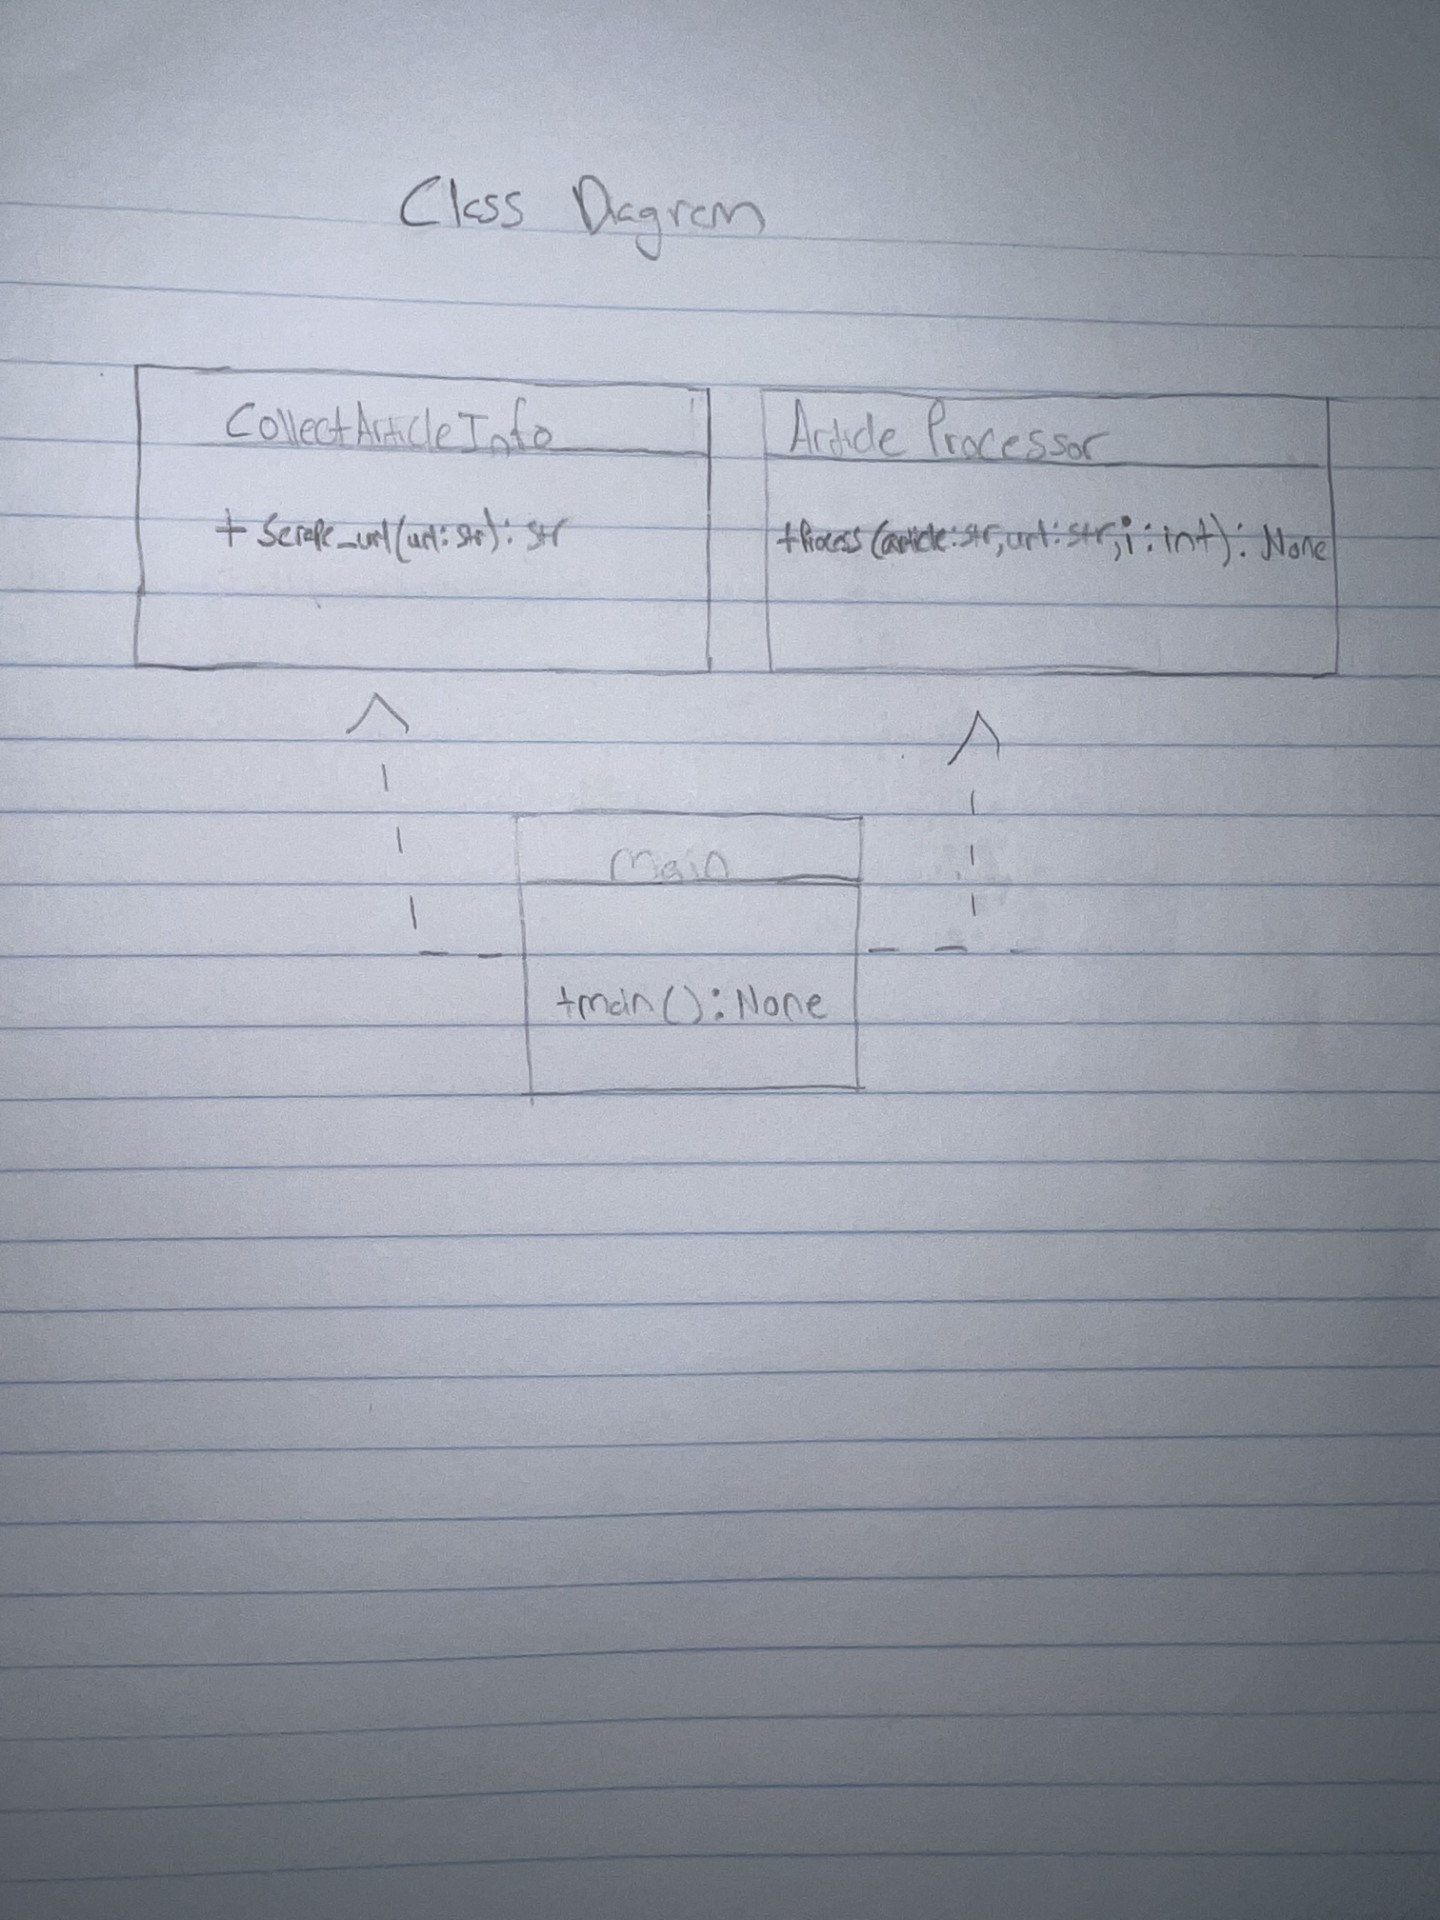 Class Diagram
CollectArticleInfo
+ Scrape_url(url: str): str
Article Processor
+Process (article: str, url: str, i: int): None
Main
+main(): None